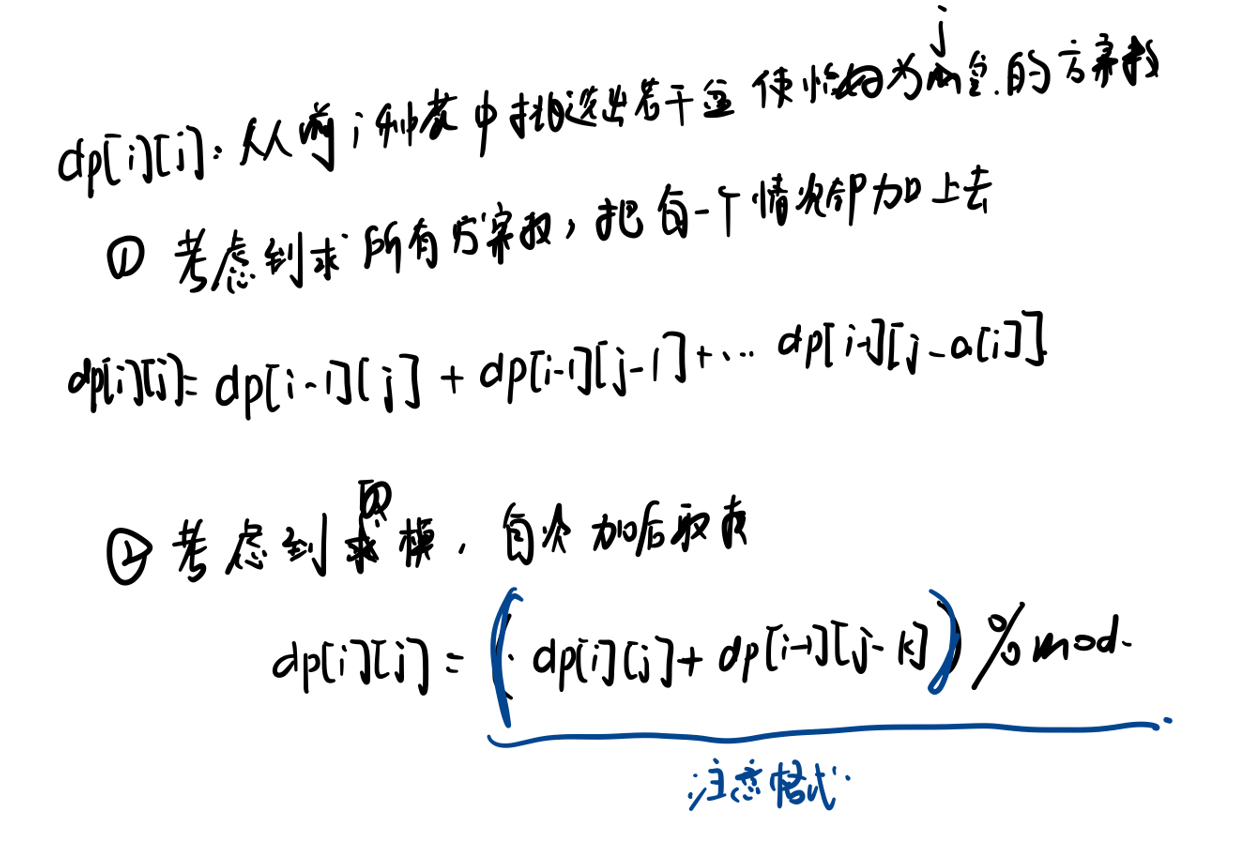 dp[i][j]:从前i种花中挑选出若干盆使恰好为j盆.的方案数
① 考虑到求所有方案数,把每一个情况都加上去
dp[i][j]= dp[i-1][j] + dp[i-1][j-1]+... dp[i-1][j-a[i]]
② 考虑到取模,每次加后取模
dp[i][j] = (dp[i][j]+ dp[i-1][j-k]) % mod.
注意格式.